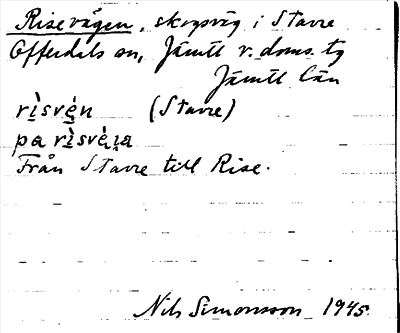 Risevägen, skogsväg i Stavre
Offerdals sn, Jämtl v. doms. tg
Jämtl län
rìsvèn (Stavre)
pa rìsvèıa
Från Stavre till Rise.
Nils Simonsson 1945